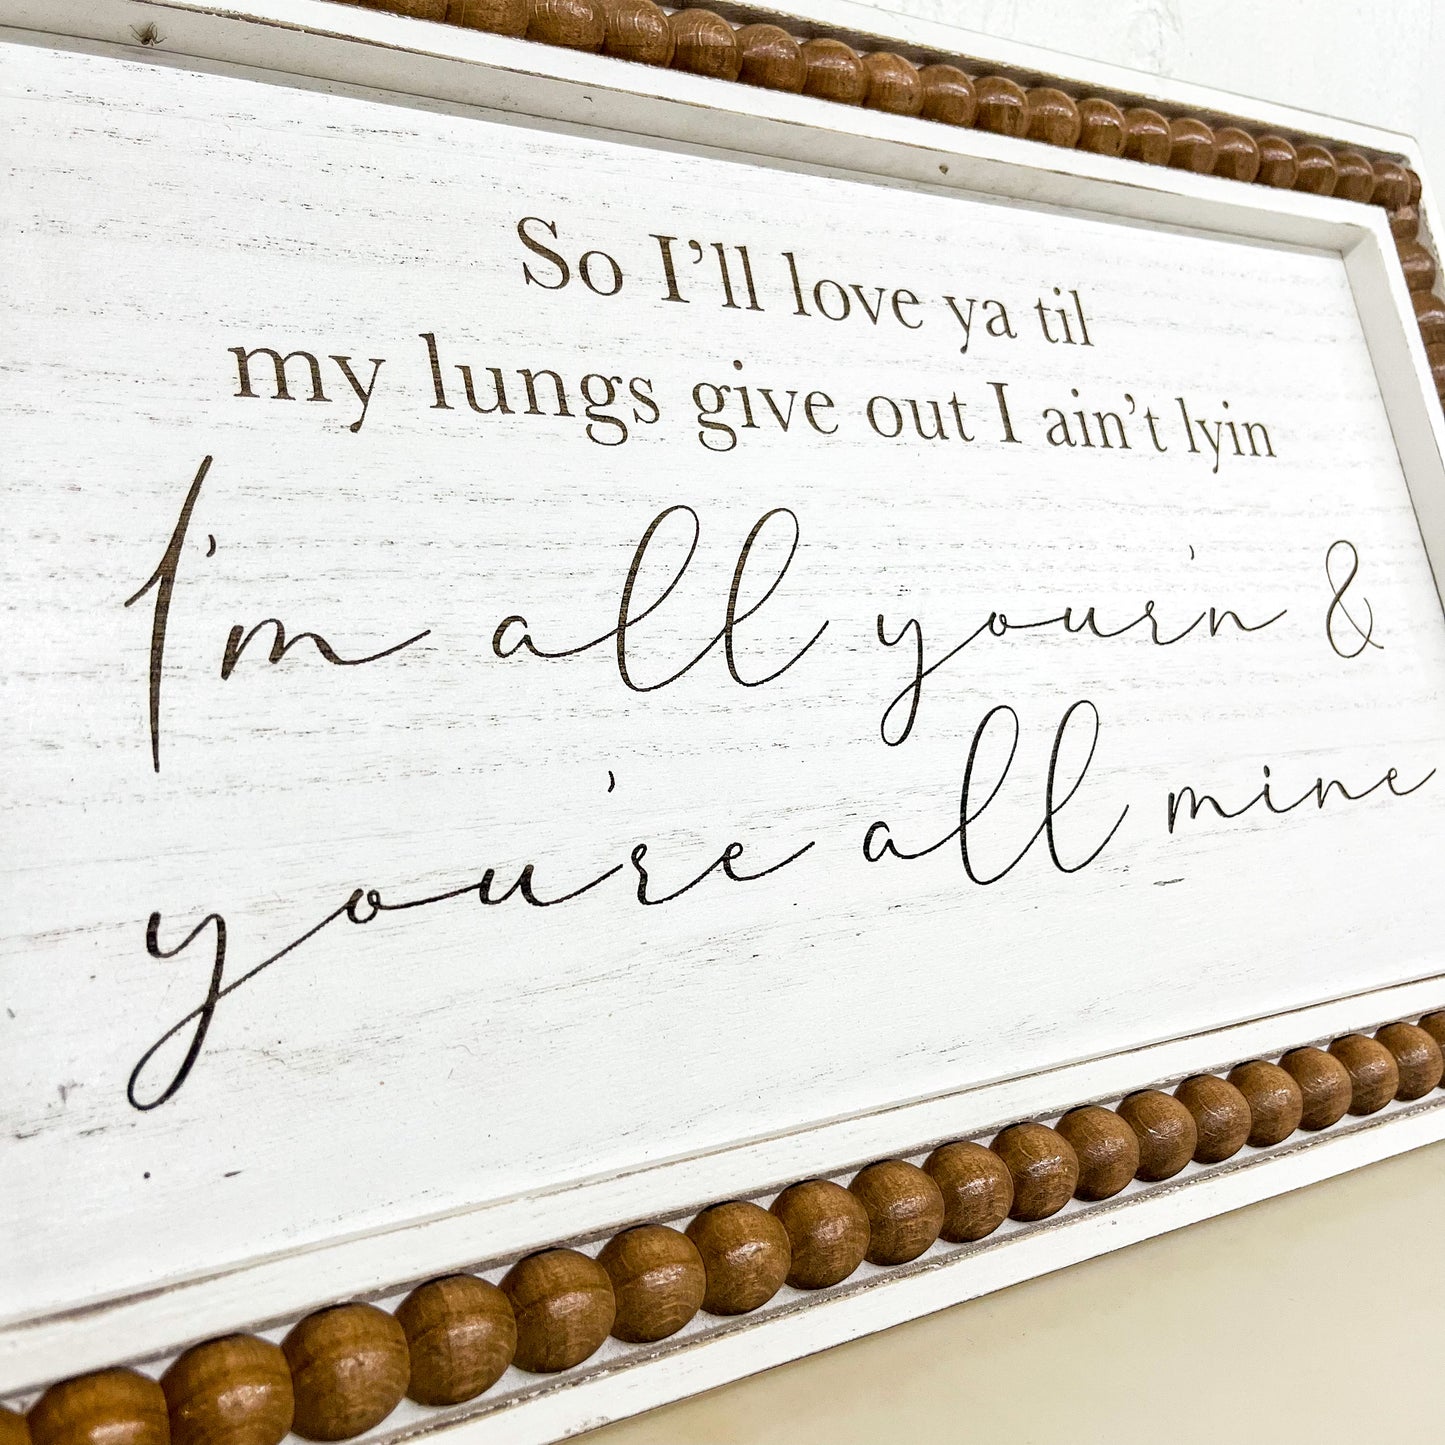 So I'll love ya til
my lungs give out I ain't lyin
I'm all your'n &
you're all mine